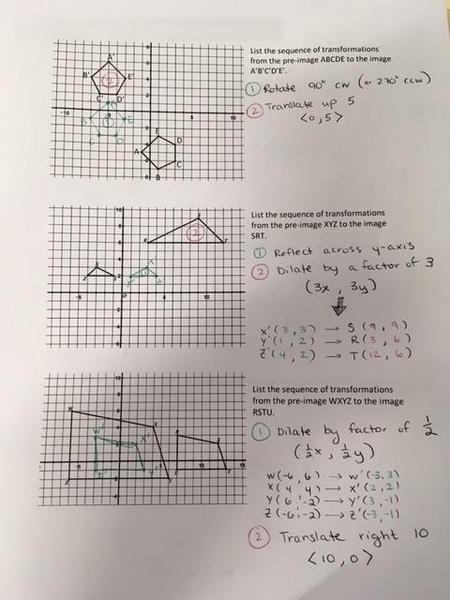 List the sequence of transformations
from the pre-image ABCDE to the image
A'B'C'D'E'.
① Rotate 90° CW (or 270° CCW)
② Translate up 5
<0,5>
A'
B'
②
E'
C' D'
①
E
-10
10
E
D
A
C
B
List the sequence of transformations
from the pre-image XYZ to the image
SRT.
① Reflect across y-axis
② Dilate by a factor of 3
(3x, 3y)
X'(3,3) → S(9,9)
Y'(1,2) → R(3,6)
Z'(4,2) → T(12,6)
10
②
-5
10
List the sequence of transformations
from the pre-image WXYZ to the image
RSTU.
① Dilate by factor of 1/2
(1/2x, 1/2y)
W(-6,6) → W'(-3,3)
X(4,4) → X'(2,2)
Y(6,-2) → Y'(3,-1)
Z(-6,-2) → Z'(-3,-1)
② Translate right 10
<10,0>
10
W'
X'
Z'
Y'
-5